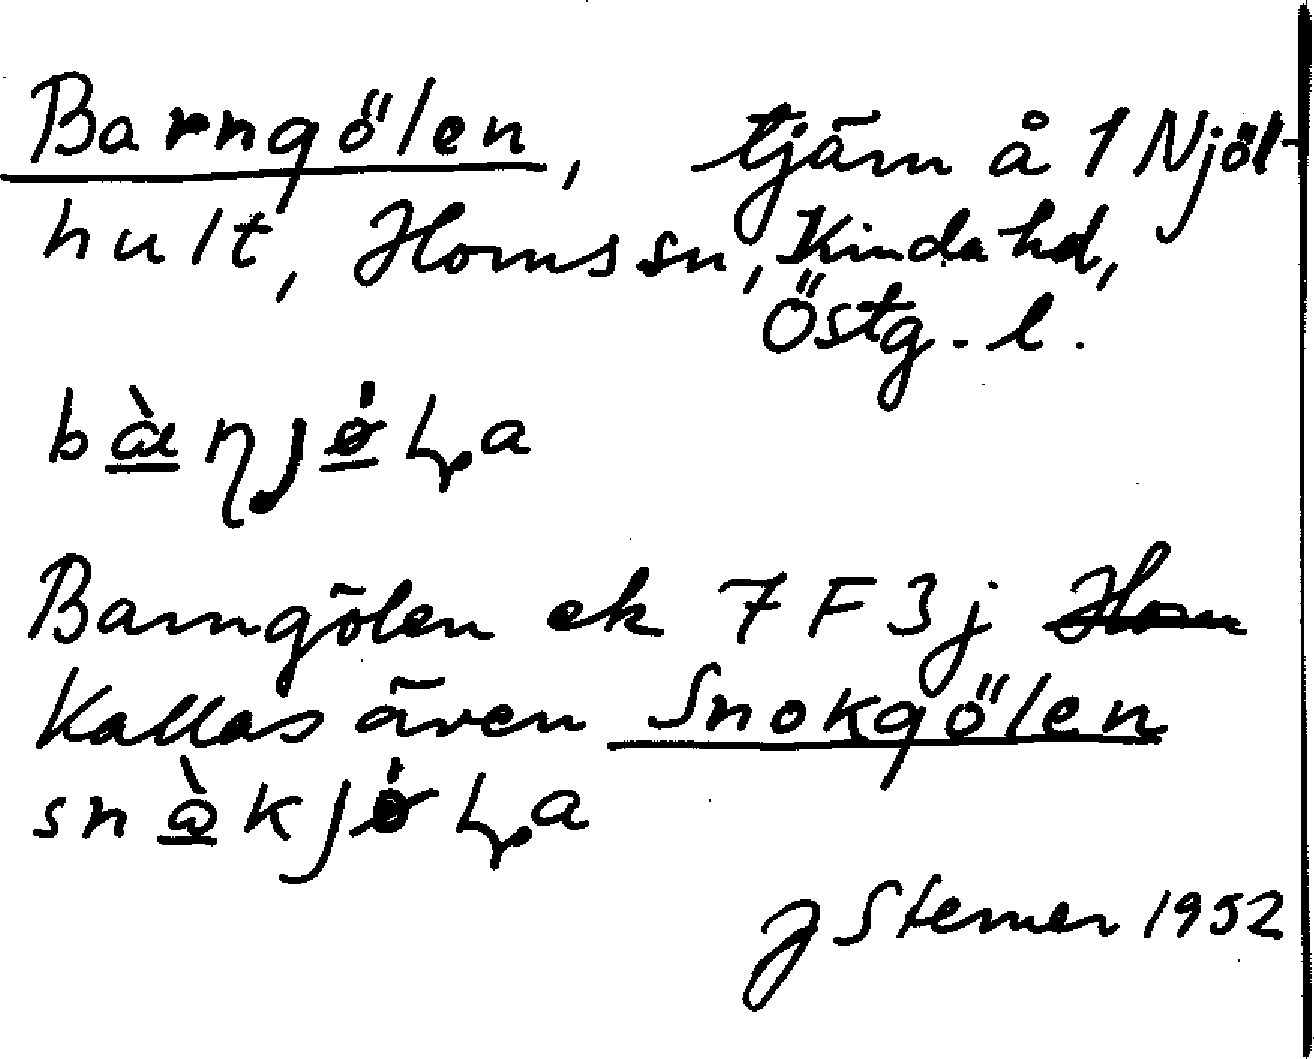 Barngölen, tjärn å 1 Njöl-
hult, Horns sn, Kinda hd,
Östg. l.
Barngölen ek 7 F 3j Horn
Kallas även Snokgölen
J Sterner 1952